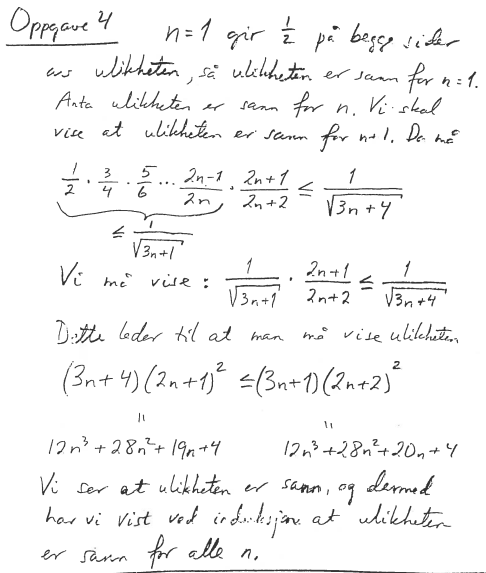 Oppgave 4 n=1 gir 1/2 på begge sider
av ulikheten, så ulikheten er sann for n=1.
Anta ulikheten er sann for n. Vi skal
vise at ulikheten er sann for n+1. Da må
1/2 · 3/4 · 5/6 ... (2n-1)/(2n) · (2n+1)/(2n+2) ≤ 1/√(3n+4)
≤ 1/√(3n+1)
Vi må vise : 1/√(3n+1) · (2n+1)/(2n+2) ≤ 1/√(3n+4)
Dette leder til at man må vise ulikheten
(3n+4)(2n+1)² ≤ (3n+1)(2n+2)²
= =
12n³+28n²+19n+4 12n³+28n²+20n+4
Vi ser at ulikheten er sann, og dermed
har vi vist ved induksjon at ulikheten
er sann for alle n.